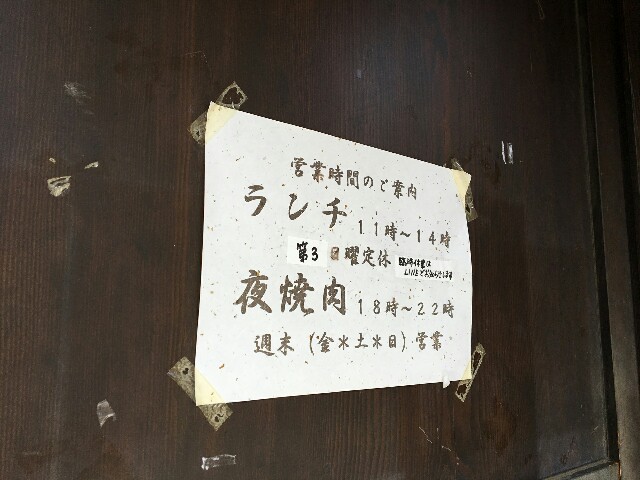 営業時間のご案内
ランチ 11時~14時
第3 日曜定休 臨時休業は
LINEでお知らせします
夜焼肉 18時~22時
週末(金*土*日)営業